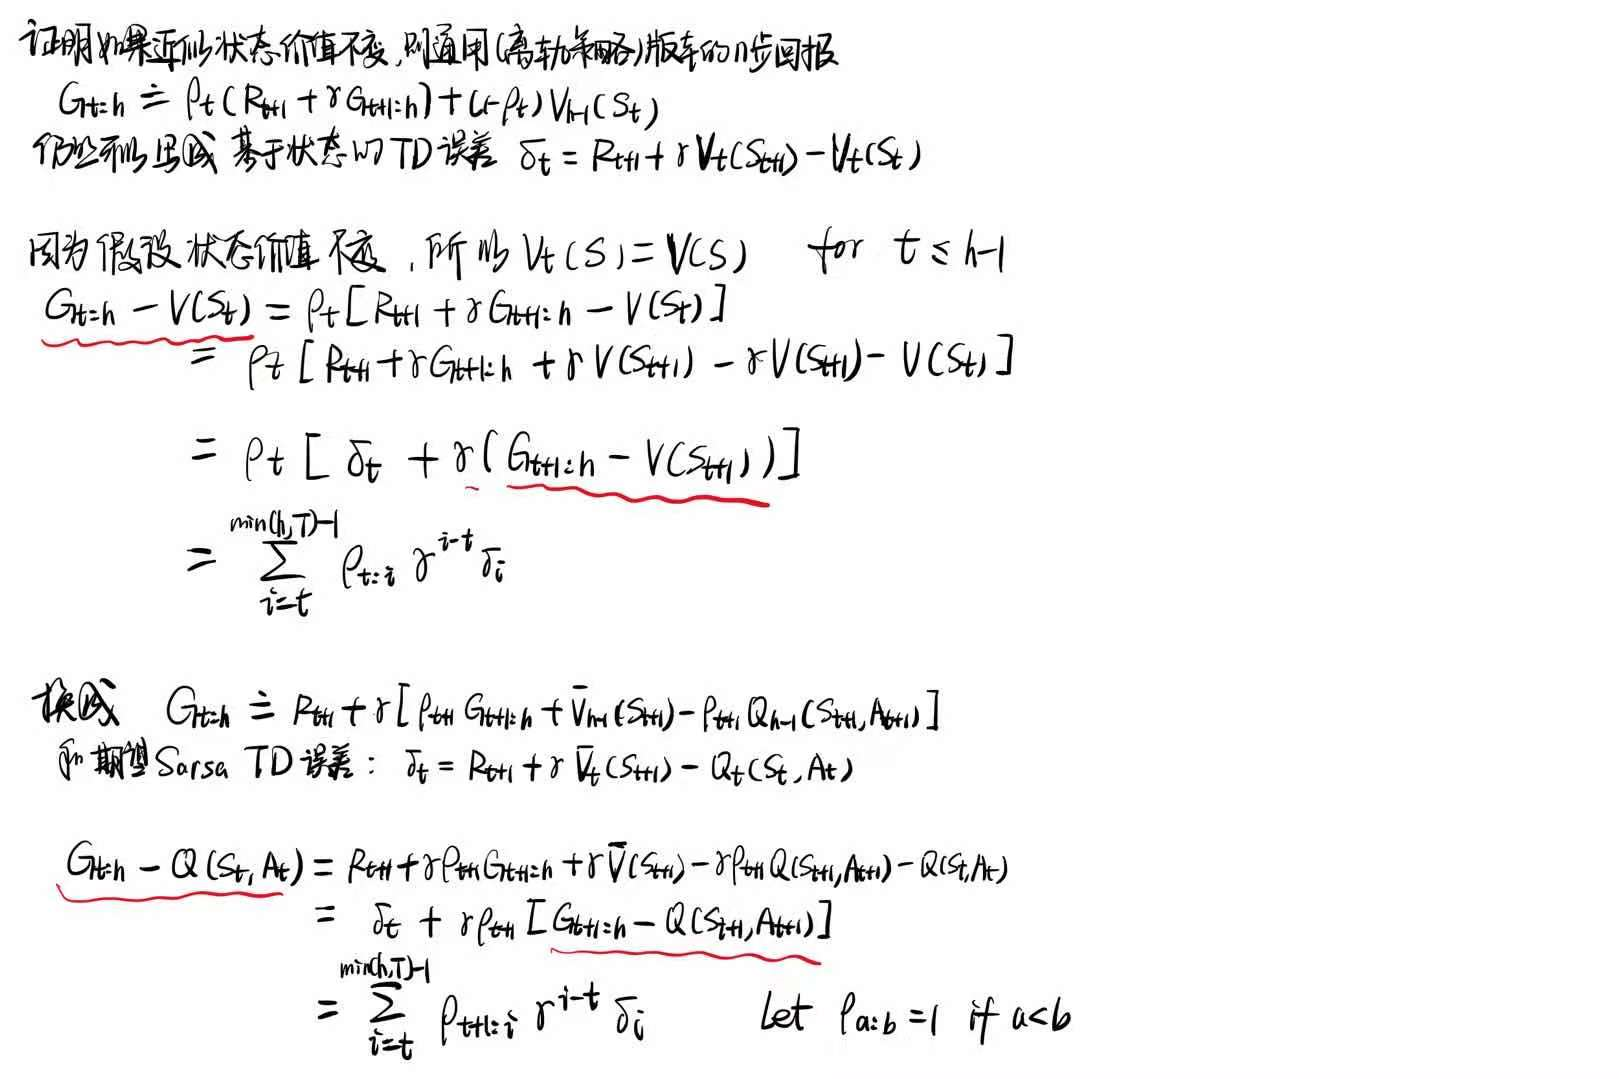 证明如果近似状态价值不变,则通用(离轨策略)版本的n步回报
G_{t:h} ≐ ρ_t(R_{t+1} + γG_{t+1:h}) + (1-ρ_t)V_{h-1}(S_t)
仍然可以写成 基于状态的TD误差 δ_t = R_{t+1} + γV_t(S_{t+1}) - V_t(S_t)
因为假设状态价值不变,所以 V_t(S) = V(S) for t ≤ h-1
G_{t:h} - V(S_t) = ρ_t[R_{t+1} + γG_{t+1:h} - V(S_t)]
= ρ_t[R_{t+1} + γG_{t+1:h} + γV(S_{t+1}) - γV(S_{t+1}) - V(S_t)]
= ρ_t[δ_t + γ(G_{t+1:h} - V(S_{t+1}))]
= Σ_{i=t}^{min(h,T)-1} ρ_{t:i} γ^{i-t} δ_i
换成 G_{t:h} ≐ R_{t+1} + γ[ρ_{t+1}G_{t+1:h} + V̄_{h-1}(S_{t+1}) - ρ_{t+1}Q_{h-1}(S_{t+1},A_{t+1})]
和期望Sarsa TD误差: δ_t = R_{t+1} + γV̄_t(S_{t+1}) - Q_t(S_t,A_t)
G_{t:h} - Q(S_t,A_t) = R_{t+1} + γρ_{t+1}G_{t+1:h} + γV̄(S_{t+1}) - γρ_{t+1}Q(S_{t+1},A_{t+1}) - Q(S_t,A_t)
= δ_t + γρ_{t+1}[G_{t+1:h} - Q(S_{t+1},A_{t+1})]
= Σ_{i=t}^{min(h,T)-1} ρ_{t+1:i} γ^{i-t} δ_i Let ρ_{a:b} = 1 if a<b